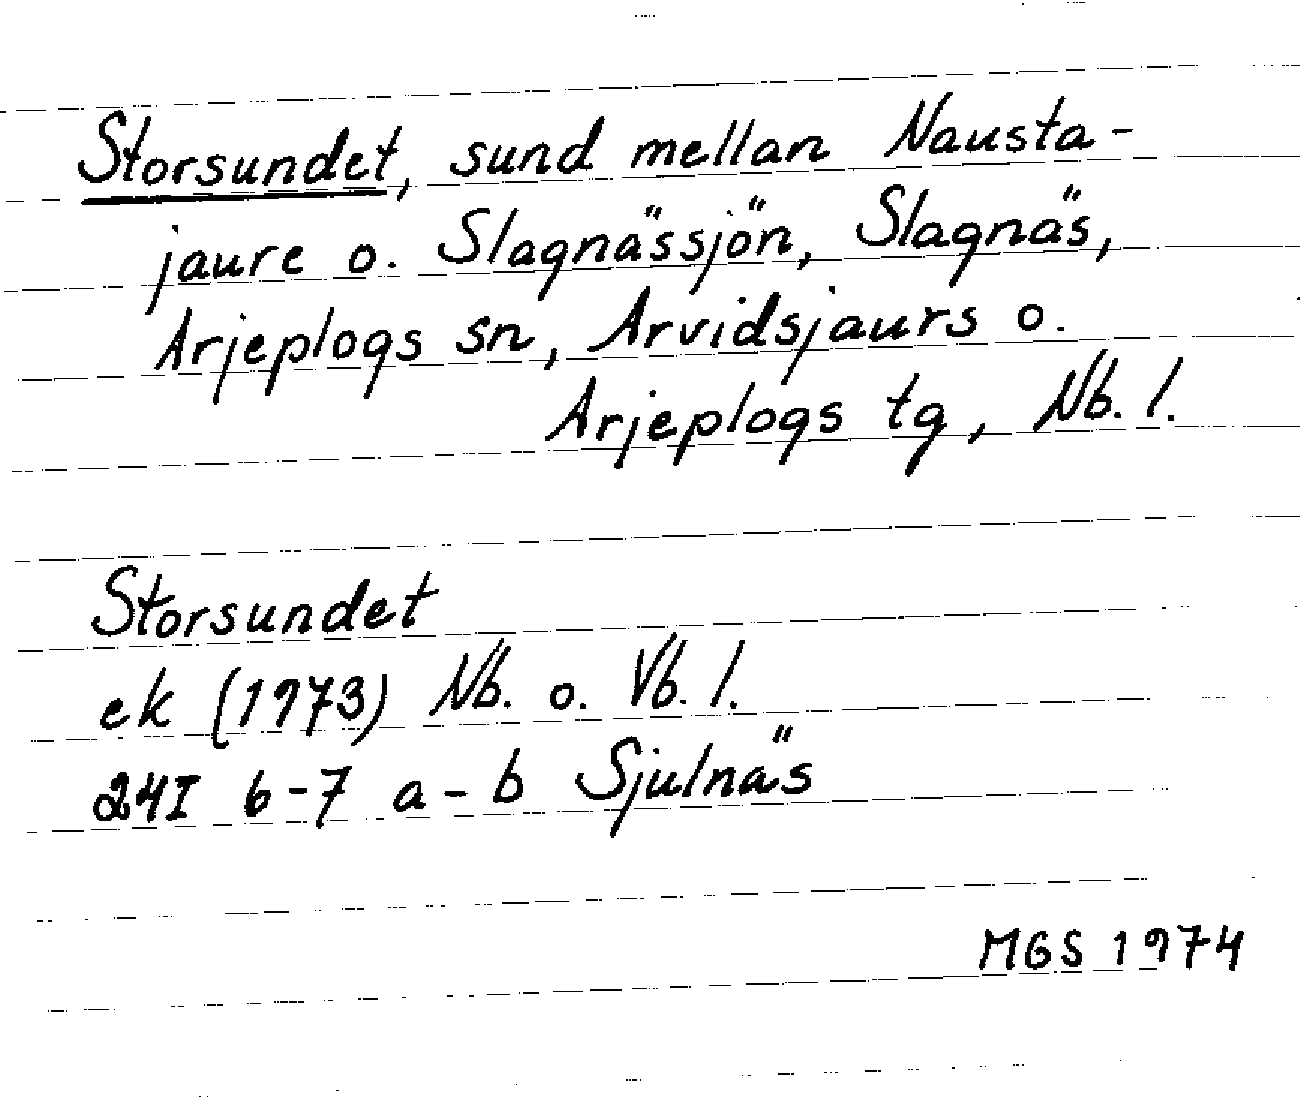 Storsundet, sund mellan Nausta-
jaure o. Slagnässjön, Slagnäs,
Arjeplogs sn, Arvidsjaurs o.
Arjeplogs tg, Nb. l.
Storsundet
ek (1973) Nb. o. Vb. l.
24I 6-7 a-b Sjulnäs
MGS 1974